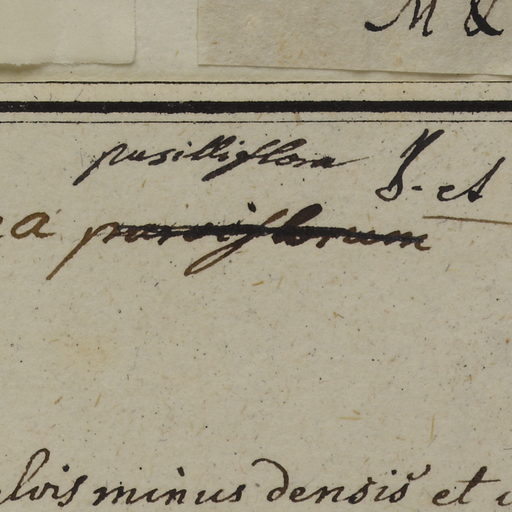 M &
pusilliflora
S. et
a parviflorum
lvis minus densis et